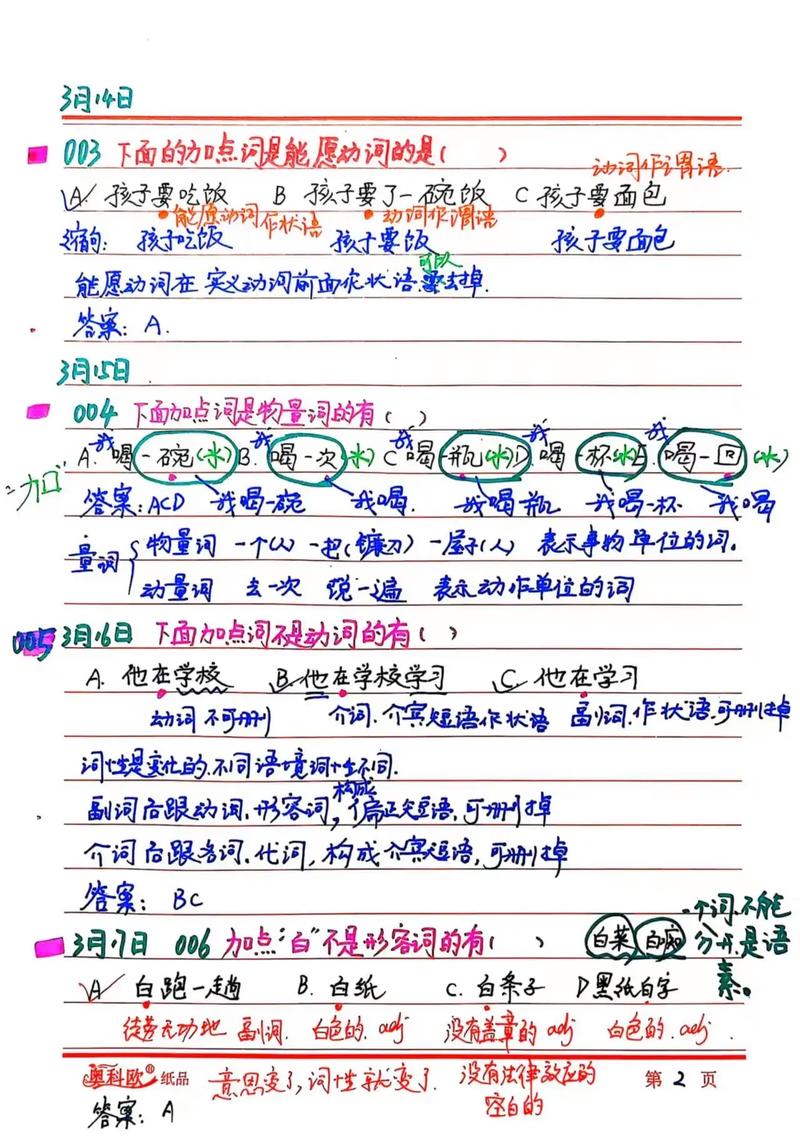 3月14日
003 下面的加点词是能愿动词的是( )
动词作谓语.
A. 孩子要吃饭 B 孩子要了一碗饭 C 孩子要面包
能愿动词作状语 动词作谓语
缩句: 孩子吃饭 孩子要饭 孩子要面包
可以
能愿动词在实义动词前面作状语.要去掉.
答案: A.
3月15日
004 下面加点词是物量词的有( )
我 我 我 我 我
A. 喝一碗(水) B. 喝一次(水) C 喝一瓶(水) D. 喝一杯(水) E. 喝一口(水)
"加"
答案: ACD 我喝一碗 我喝. 我喝一瓶 我喝一杯 我喝
量词 物量词 一个(人) 一把(镰刀) 一屋子(人) 表示事物单位的词.
动量词 去一次 说一遍 表示动作单位的词
005 3月16日 下面加点词不是动词的有( )
A. 他在学校 B. 他在学校学习 C. 他在学习
动词 不可删 介词.介宾短语作状语 副词.作状语.可删掉
词性是变化的.不同语境词性不同.
构成
副词后跟动词.形容词,偏正短语,可删掉
介词后跟名词.代词,构成介宾短语,可删掉
答案: BC
一个词.不能
3月17日 006 加点"白"不是形容词的有( ) 白菜 白痴 分开.是语
素。
A 白跑一趟 B. 白纸 C. 白条子 D 黑纸白字
徒劳无功地 副词. 白色的. adj 没有盖章的 adj 白色的. adj.
奥科欧® 纸品 意思变了,词性就变了. 没有法律效应的 第 2 页
空白的
答案: A